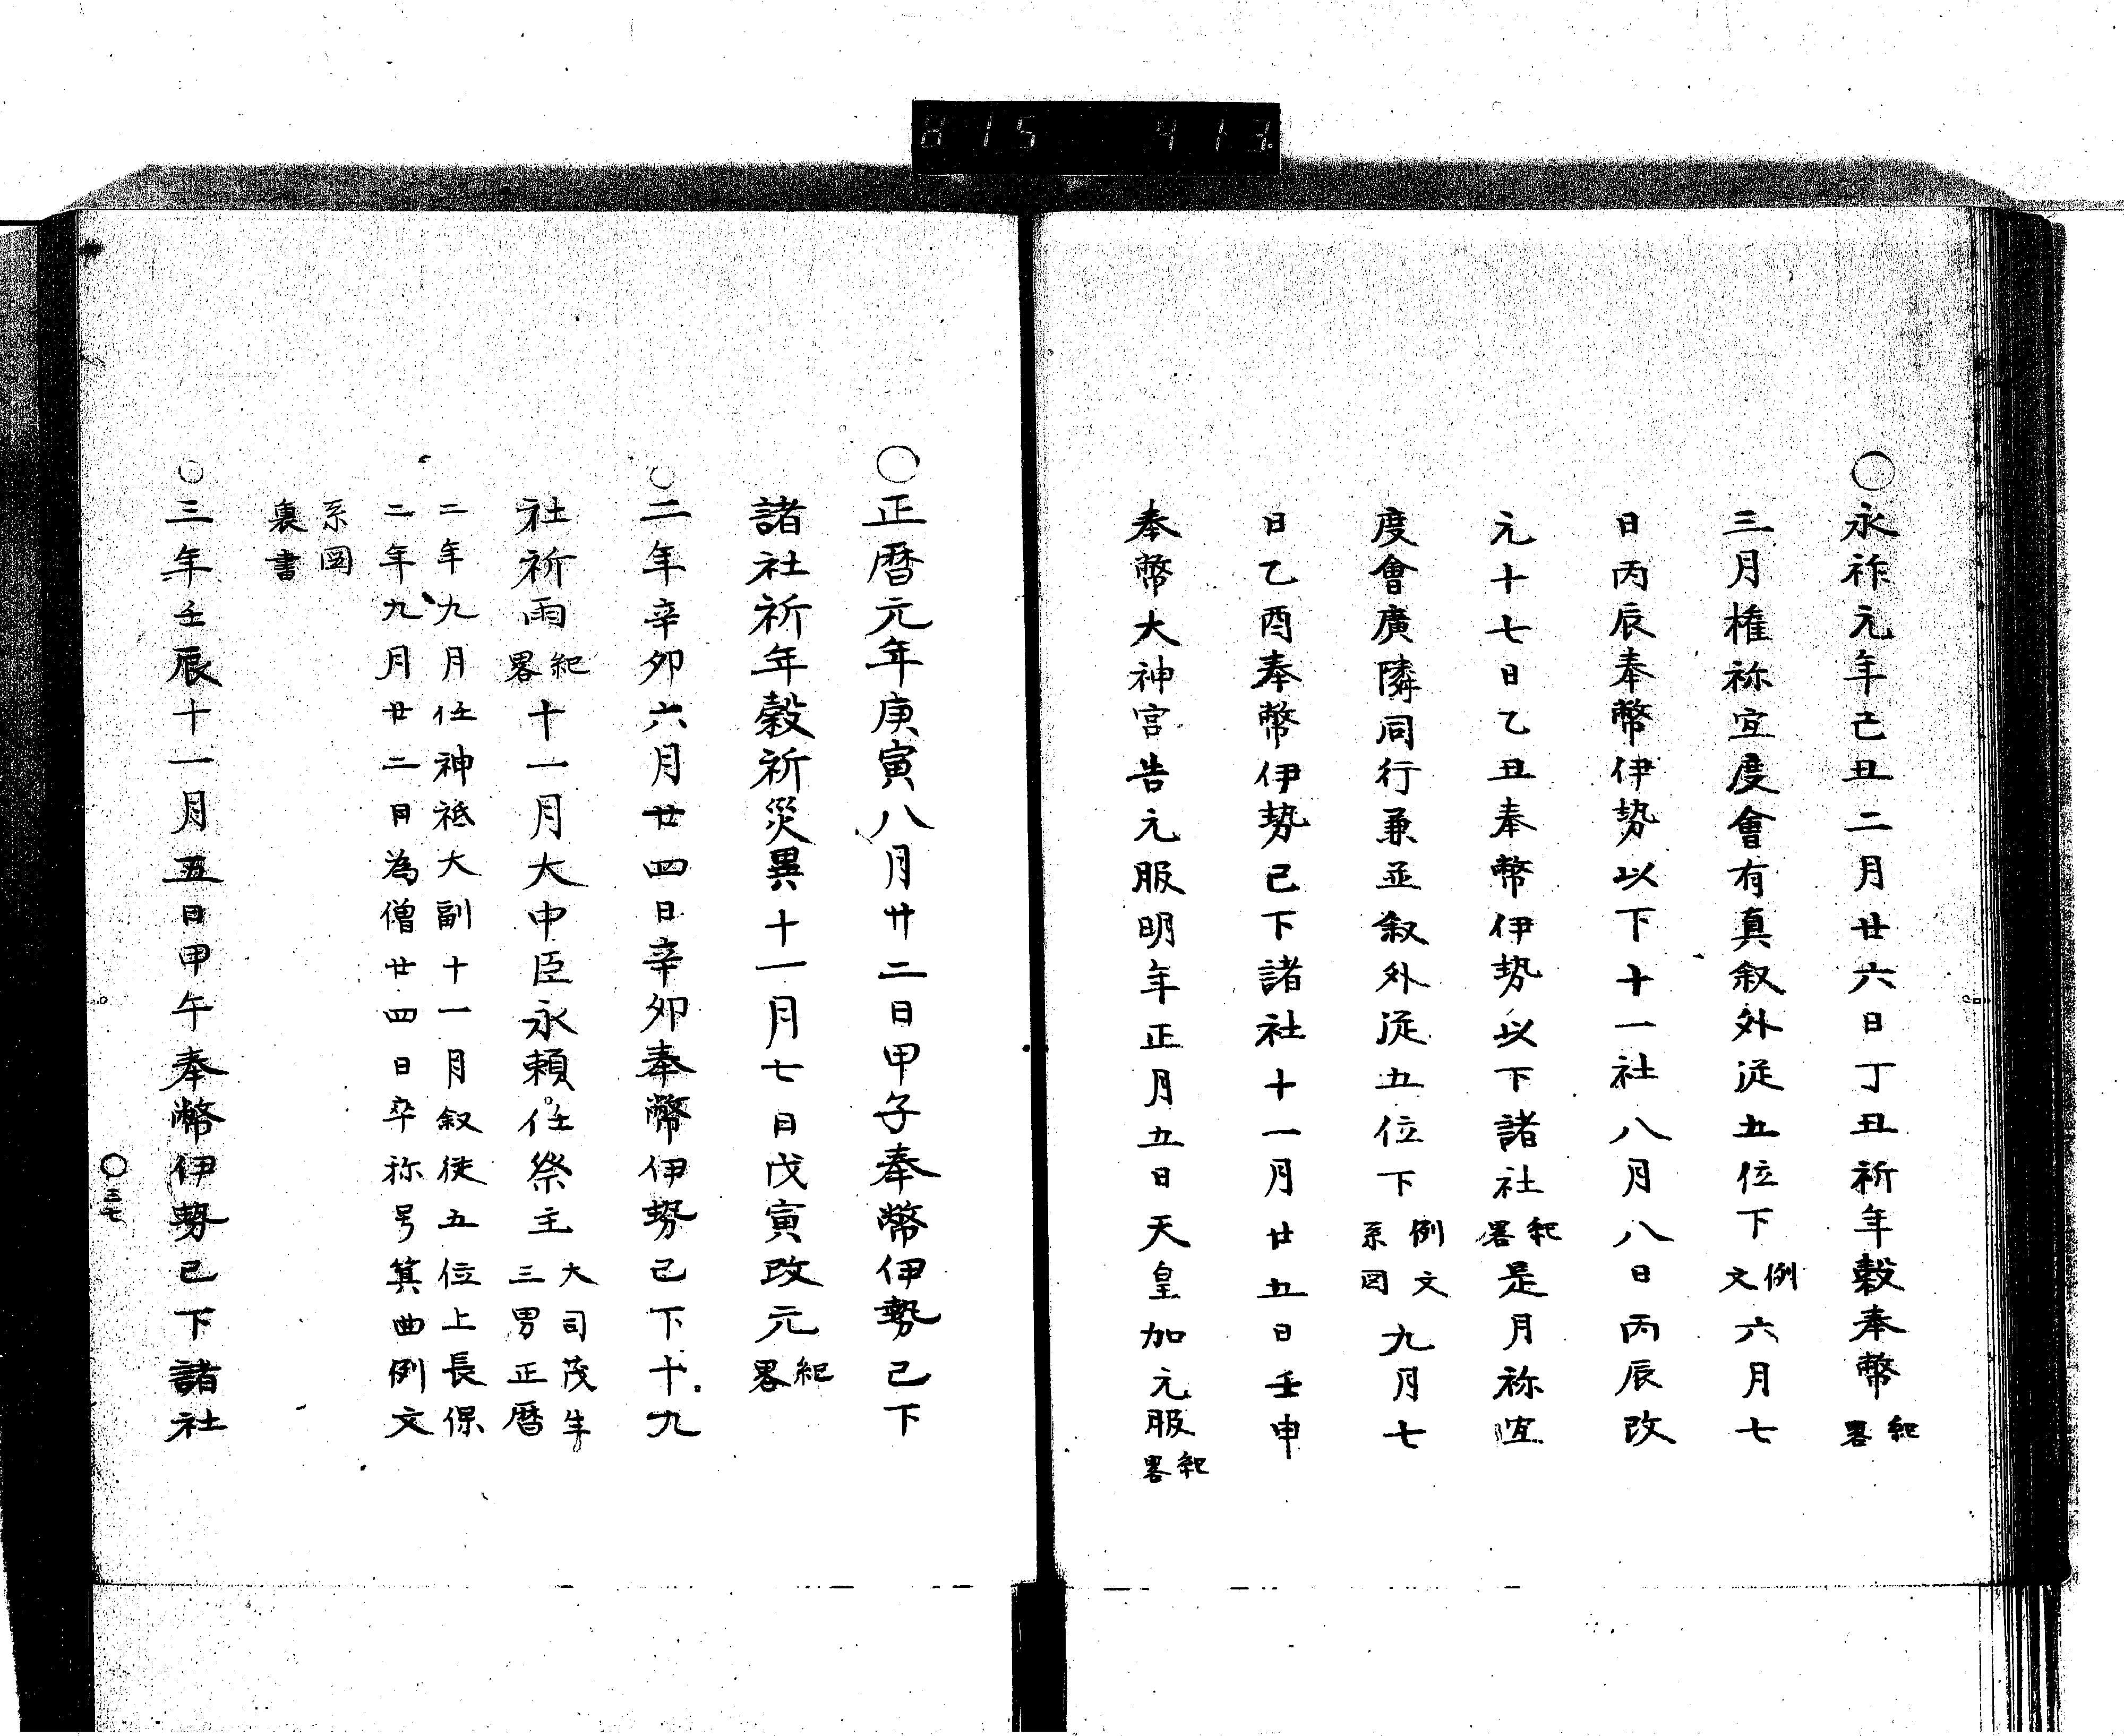 815 413
〇永祚元年己丑二月廿六日丁丑祈年穀奉幣紀畧
三月権祢宜度會有真叙外従五位下例文六月七
日丙辰奉幣伊勢以下十一社八月八日丙辰改
元十七日乙丑奉幣伊勢以下諸社紀畧是月祢宜
度會廣隣同行兼並叙外従五位下例文系図九月七
日乙酉奉幣伊勢已下諸社十一月廿五日壬申
奉幣大神宮告元服明年正月五日天皇加元服紀畧
〇正暦元年庚寅八月廿二日甲子奉幣伊勢已下
諸社祈年穀祈災異十一月七日戊寅改元紀畧
〇二年辛卯六月廿四日辛卯奉幣伊勢已下十九
社祈雨紀畧十一月大中臣永頼任祭主大司茂生三男正暦
二年九月任神祇大副十一月叙従五位上長保
二年九月廿二日為僧廿四日卒祢号箕曲例文
系図
裏書
〇三年壬辰十一月五日甲午奉幣伊勢已下諸社
〇三七